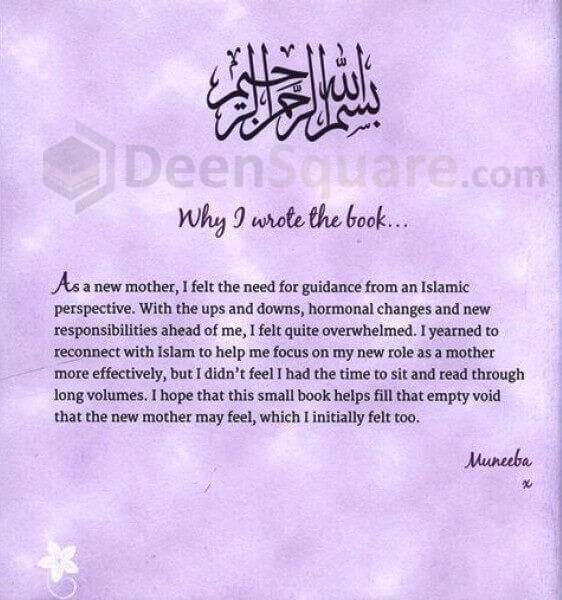 بسم الله الرحمن الرحيم
DeenSquare.com
Why I wrote the book...
As a new mother, I felt the need for guidance from an Islamic
perspective. With the ups and downs, hormonal changes and new
responsibilities ahead of me, I felt quite overwhelmed. I yearned to
reconnect with Islam to help me focus on my new role as a mother
more effectively, but I didn't feel I had the time to sit and read through
long volumes. I hope that this small book helps fill that empty void
that the new mother may feel, which I initially felt too.
Muneeba
x